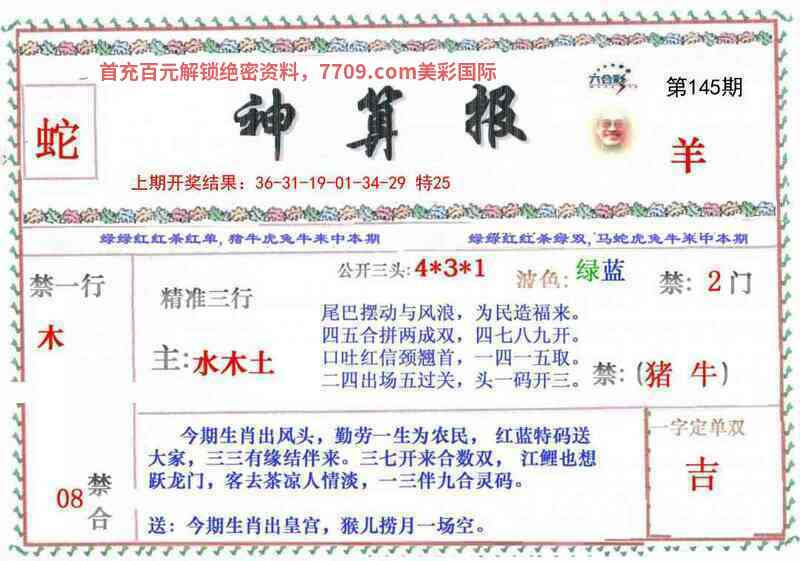 首充百元解锁绝密资料，7709.com美彩国际
神算报
六合彩
第145期
蛇
羊
上期开奖结果：36-31-19-01-34-29 特25
绿绿红红杀红单,猪牛虎兔牛来中本期
绿绿红红杀绿双,马蛇虎兔牛来中本期
禁一行
木
精准三行
主:水木土
公开三头:4*3*1
波色:绿蓝
禁:2门
尾巴摆动与风浪，为民造福来。
四五合拼两成双，四七八九开。
口吐红信颈翘首，一四一五取。
二四出场五过关，头一码开三。
禁:(猪 牛)
08
禁合
今期生肖出风头，勤劳一生为农民， 红蓝特码送
大家，三三有缘结伴来。三七开来合数双， 江鲤也想
跃龙门，客去茶凉人情淡，一三伴九合灵码。
送：今期生肖出皇宫，猴儿捞月一场空。
一字定单双
吉